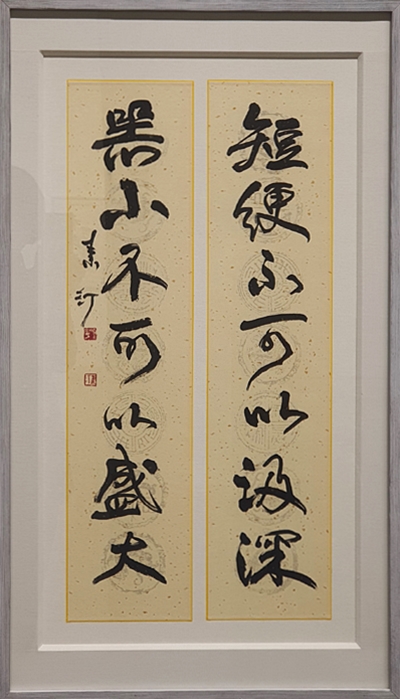 短綆不可以汲深
器小不可以盛大